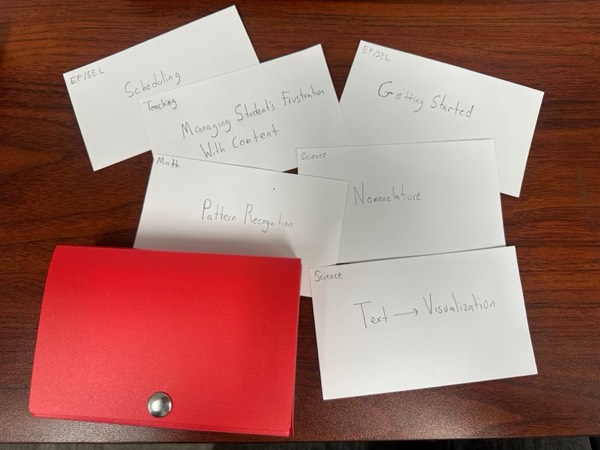 EF/SEL
Scheduling
Teaching
Managing Student's Frustration
With Content
EF/SEL
Getting Started
Math
Pattern Recognition
Science
Nomenclature
Science
Text → Visualization